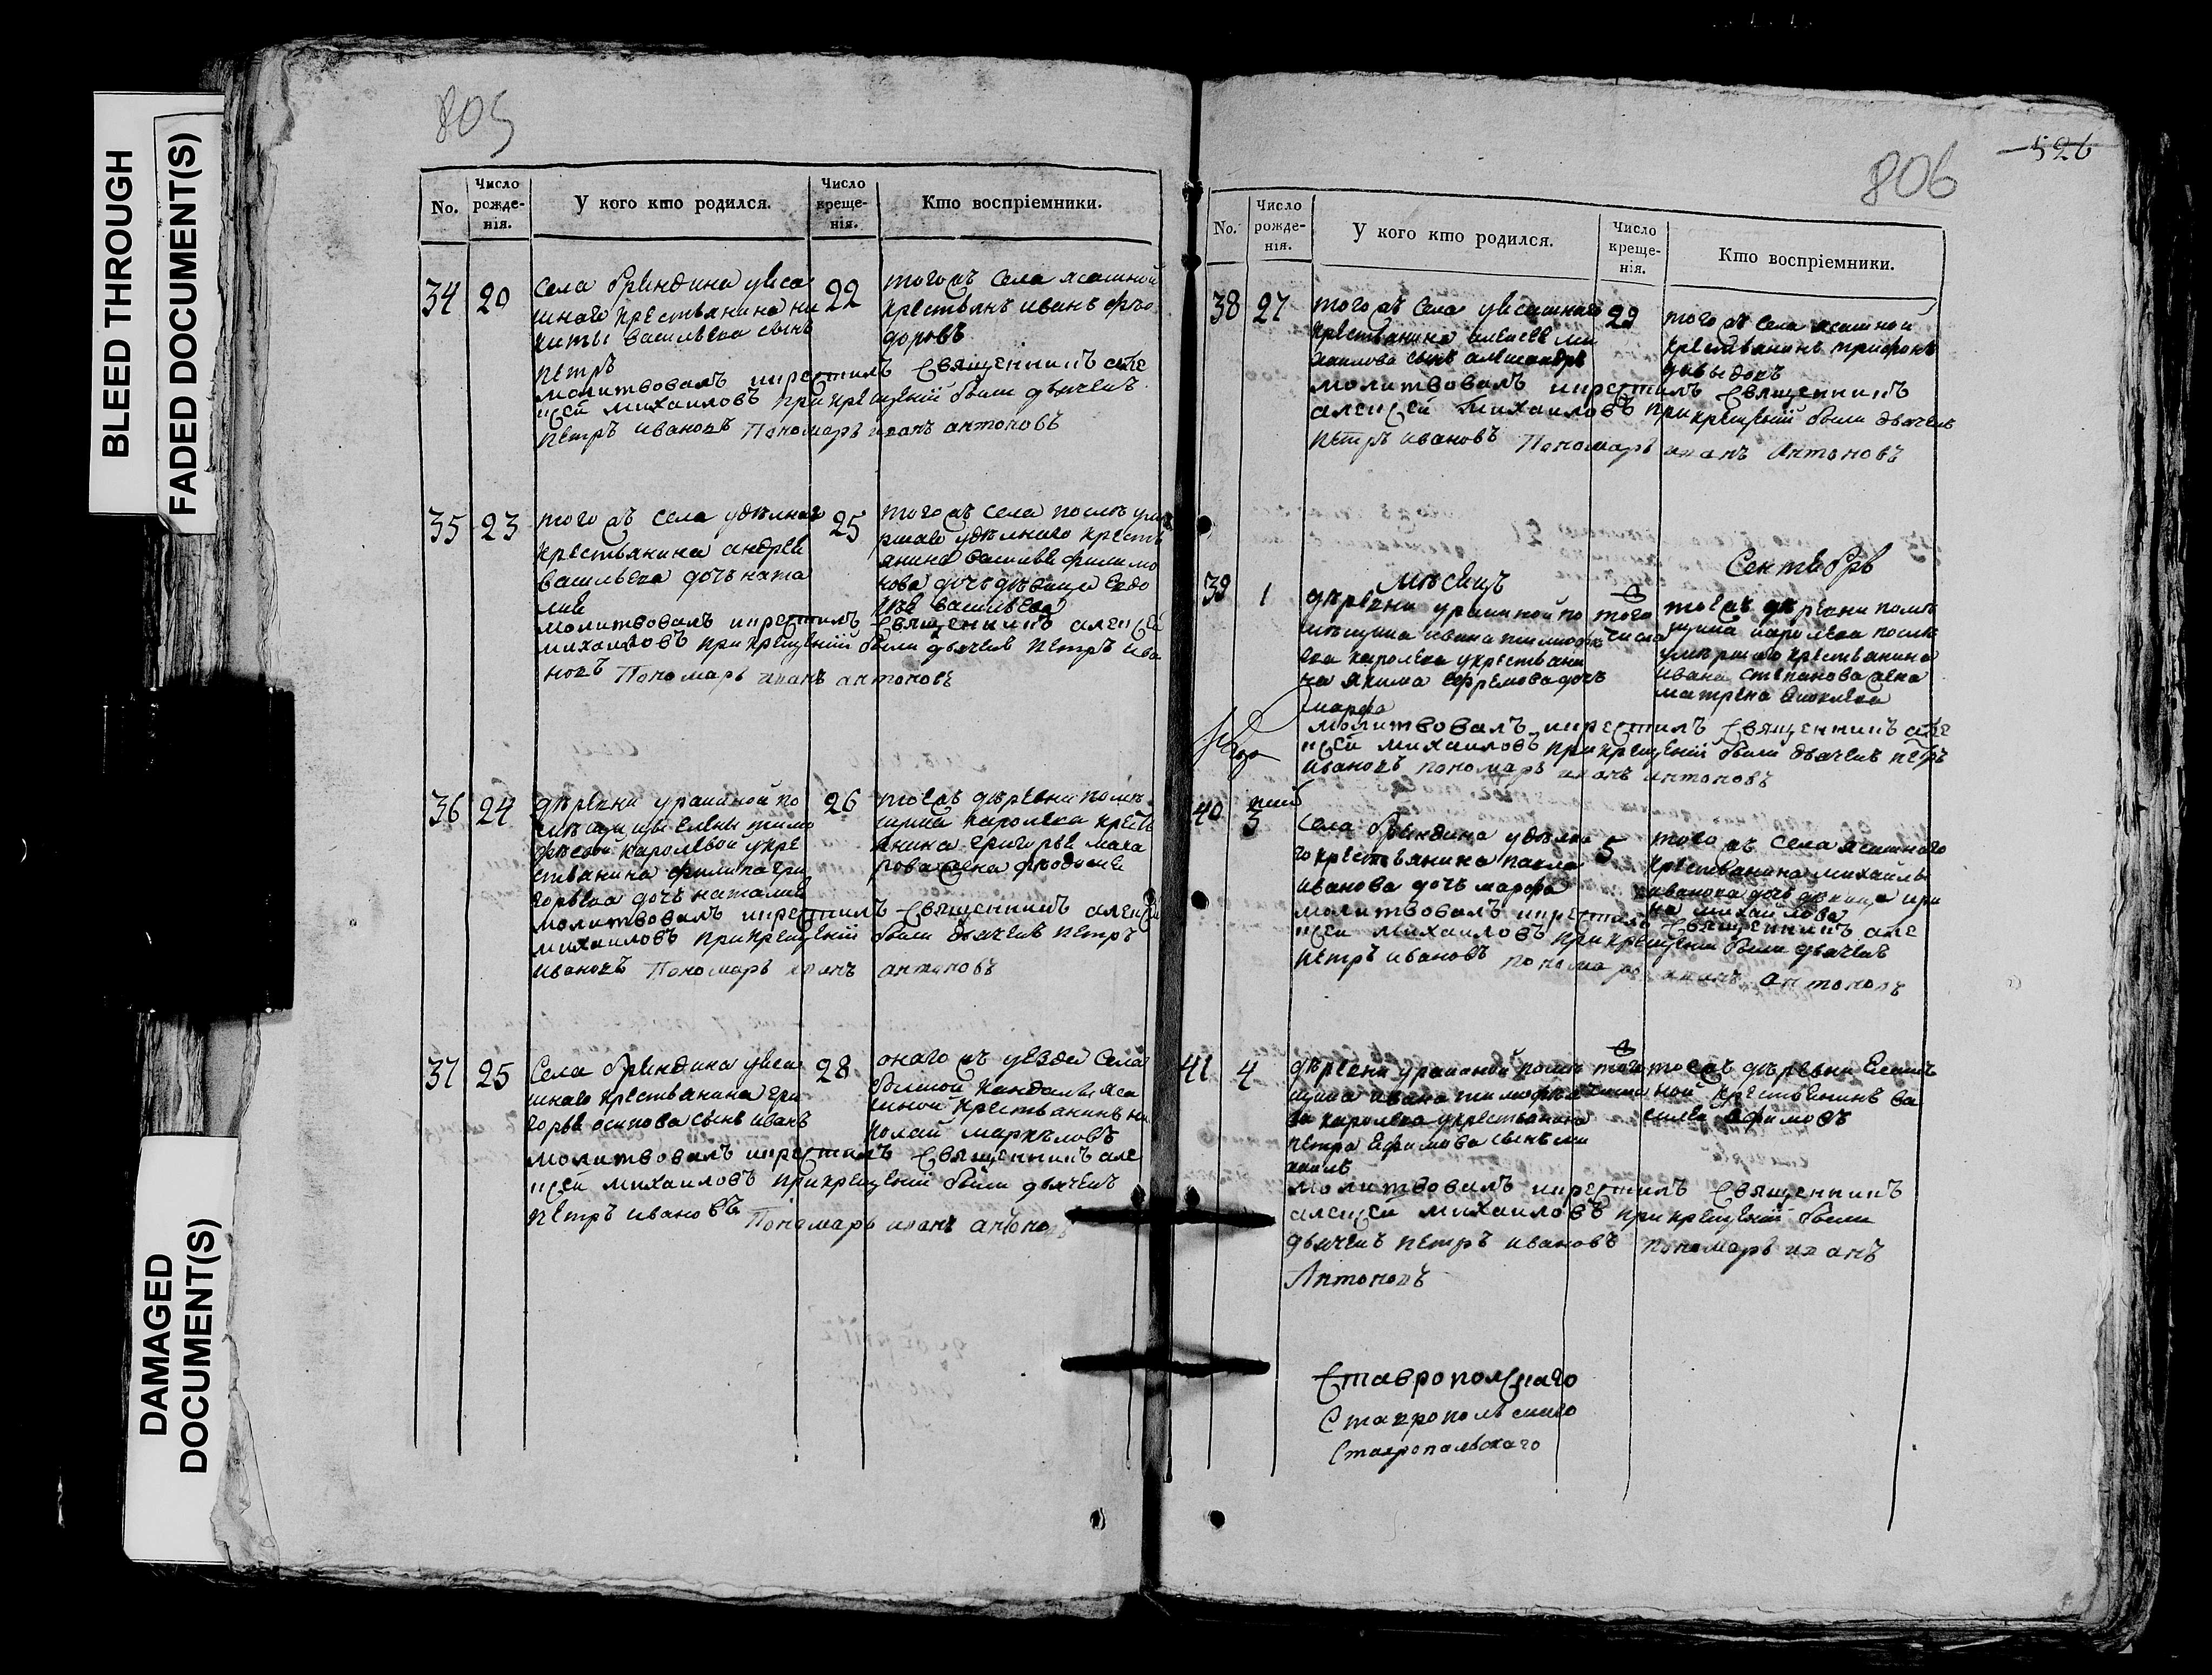 BLEED THROUGH
FADED DOCUMENT(S)
DAMAGED
DOCUMENT(S)
805
No.
Число рожде-нія.
У кого кто родился.
Число креще-нія.
Кто воспріемники.
34 20
села бриндина у Яса
шнаго крестьянина ни
киты васильева сынъ
петръ
22
тогожъ села ясашной
крестьянъ иванъ фео
доровъ
молитвовалъ икрестилъ священникъ але
ксей михаиловъ прикрещеніи были дьячекъ
петръ ивановъ Пономарь иванъ антоновъ
35 23
тогожъ села удѣлнаго
крестьянина андрея
васильева дочь ната
лия
25
тогожъ села послѣ уме
ршаго удѣлнаго кресть
янина василья филимо
нова дочь дѣвица евдо
кія васильева
молитвовалъ икрестилъ священникъ алексей
михаиловъ прикрещеніи были дьячекъ петръ ива
новъ Пономарь иванъ антоновъ
36 24
деревни урайкиной по
мѣщицы елены тимо
фѣевой королевой укре
стьянина филипа гри
горьева дочь наталия
26
тоежъ деревни помѣ
щика королева кресть
янина григорья мака
рова жена феодосия
молитвовалъ икрестилъ священникъ алексей
михаиловъ прикрещеніи были дьячекъ петръ
ивановъ Пономарь иванъ антоновъ
37 25
Села бриндина уяса
шнаго крестьянина гри
горья осипова сынъ иванъ
28
онагожъ уезда села
болшой кандалы яса
шной крестьянинъ ни
колай маркеловъ
молитвовалъ икрестилъ священникъ але
ксей михаиловъ прикрещеніи были дьячекъ
петръ ивановъ Пономарь иванъ антоно
806
526
No.
Число рожде-нія.
У кого кто родился.
Число креще-нія.
Кто воспріемники.
38 27
тогожъ села уясашнаго
крестьянина алексея ми
хаилова сынъ александръ
29
тогожъ села ясашной
крестьянинъ трифонъ
давыдовъ
молитвовалъ икрестилъ священникъ
алексей михаиловъ прикрещеніи были дьячекъ
петръ ивановъ Пономарь иванъ Антоновъ
мѣсяцъ Сентябрь
39 1
деревни урайкиной по
мѣщика ивана тимофѣе
ва королева укрестьяни
на якима ефремова дочь
марфа
того числа
тоежъ деревни помѣ
щика королева послѣ
умершаго крестьянина
ивана степанова жена
матрена
молитвовалъ икрестилъ священникъ але
ксей михаиловъ прикрещеніи были дьячекъ петръ
ивановъ пономарь иванъ антоновъ
40 3
села бриндина удѣлна
го крестьянина павла
иванова дочь марфа
5
тогожъ села ясашнаго
крестьянина михаилы
иванова дочь девица ири
на михайлова
молитвовалъ икрестилъ священникъ але
ксей михаиловъ прикрещеніи были дьячекъ
петръ ивановъ пономарь иванъ антоновъ
41 4
деревни урайкиной помѣ
щика ивана тимофѣе
ва королева укрестьянина
петра Ефимова сынъ ми
хаилъ
того числа
тоежъ деревни
ной крестьянинъ ва
силей ефимовъ
молитвовалъ икрестилъ священникъ
алексей михаиловъ прикрещеніи были
дьячекъ петръ ивановъ пономарь иванъ
Антоновъ
Ставрополскаго
Ставропольскаго
Ставропольскаго